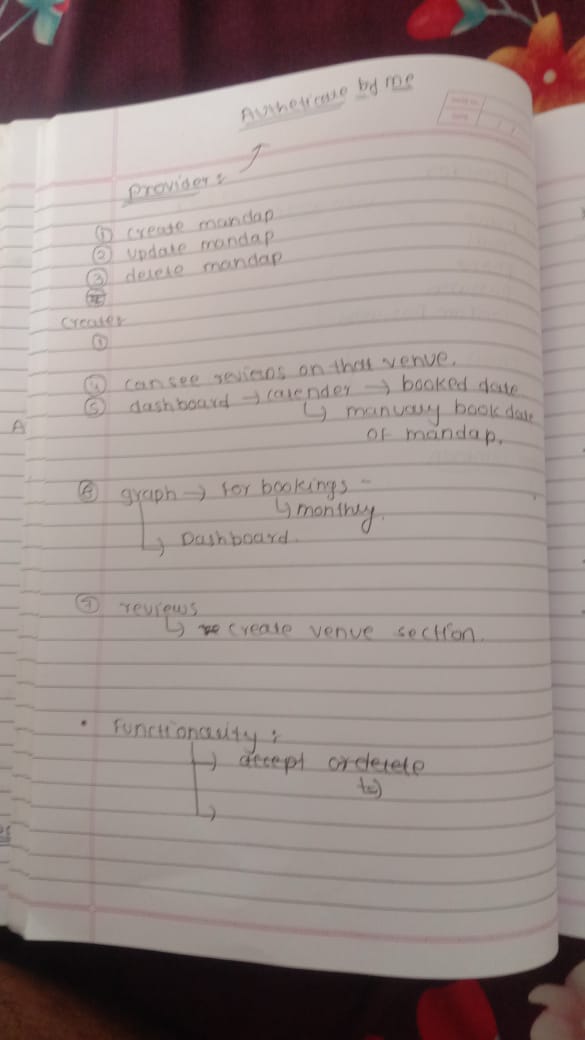 Autheticate by me
Provider :
① create mandap
② update mandap
③ delete mandap
Creater
①
④ can see reviews on that venue.
⑤ dashboard → calender → booked date
↳ manualy book date
of mandap.
⑥ graph → for bookings -
↳ monthly.
↳ Dashboard.
⑦ reviews
↳ create venue section.
• Functionality :
→ accept or delete
↳